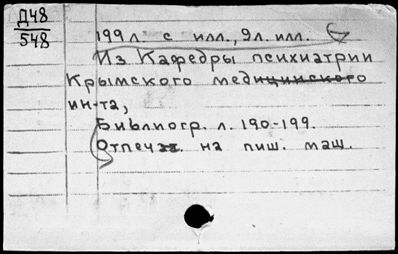 Д48
548
199 л. с илл., 9 л. илл.
Из Кафедры психиатрии
Крымского медицинского
ин-та,
Библиогр. л. 190-199.
Отпеч. на пиш. маш.